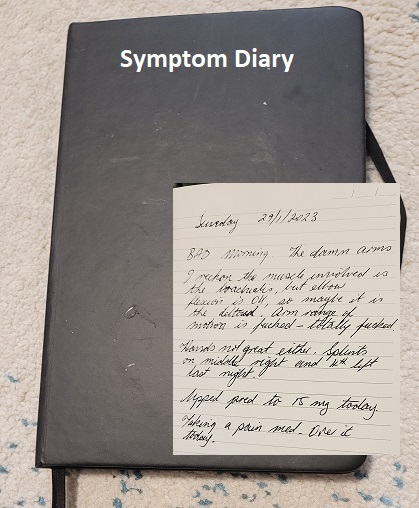 Symptom Diary
Sunday 29/1/2023
BAD morning. The damn arms
I reckon the muscle involved is
the brachialis, but elbow
flexion is OK, so maybe it is
the deltoid. Arm range of
motion is fucked - totally fucked.
Hands not great either. Splints
on middle right and 4th left
last night.
Upped pred to 15 mg today
Taking a pain med. Over it
today.